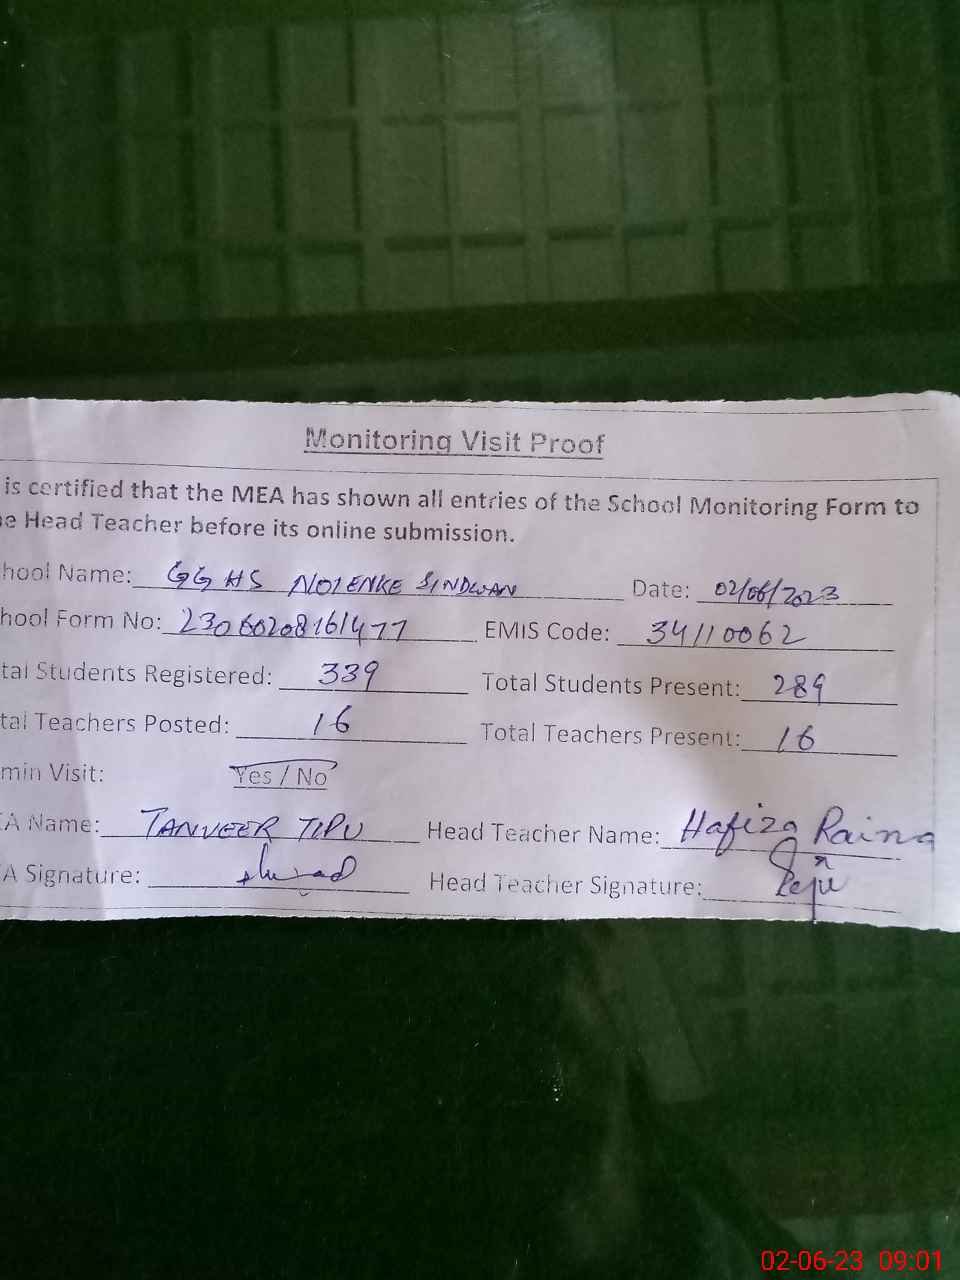 Monitoring Visit Proof
is certified that the MEA has shown all entries of the School Monitoring Form to
e Head Teacher before its online submission.
hool Name: GGHS NOIENKE SINDWAN Date: 02/06/2023
hool Form No: 23060208161477 EMIS Code: 34110062
tal Students Registered: 339 Total Students Present: 289
tal Teachers Posted: 16 Total Teachers Present: 16
min Visit: Yes / No
A Name: TANVEER TIPU Head Teacher Name: Hafiza Raina
A Signature: Head Teacher Signature:
02-06-23 09:01